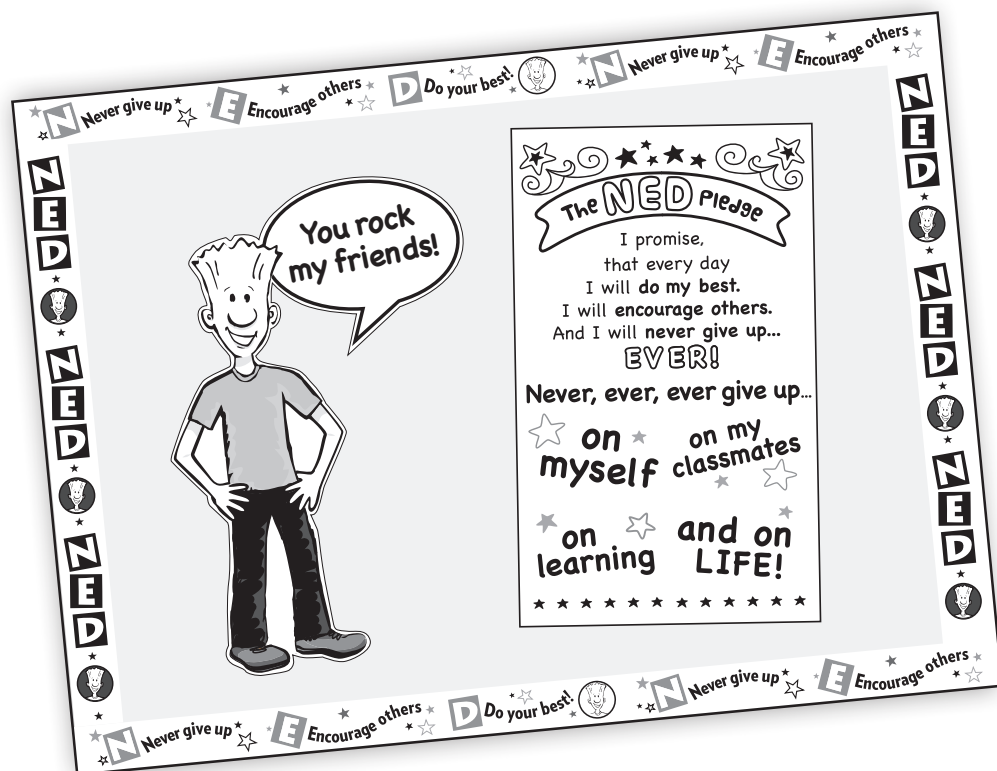 N Never give up E Encourage others D Do your best! N Never give up E Encourage others
N
E
D
N
E
D
N
E
D
You rock
my friends!
The NED Pledge
I promise,
that every day
I will do my best.
I will encourage others.
And I will never give up...
EVER!
Never, ever, ever give up...
on
myself
on my
classmates
on
learning
and on
LIFE!
N
E
D
N
E
D
N
E
D
N Never give up E Encourage others D Do your best! N Never give up E Encourage others